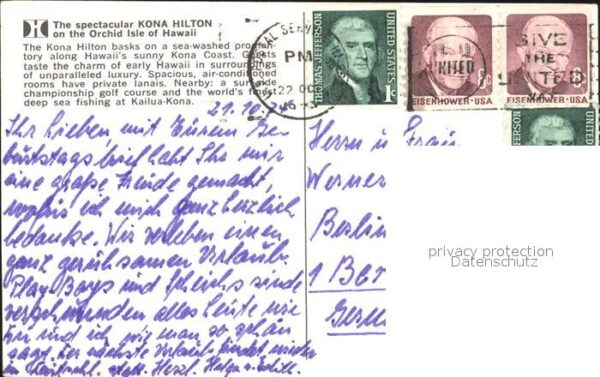 The spectacular KONA HILTON
on the Orchid Isle of Hawaii
The Kona Hilton basks on a sea-washed promon-
tory along Hawaii's sunny Kona Coast. Guests
taste the charm of early Hawaii in surroundings
of unparalleled luxury. Spacious, air-conditioned
rooms have private lanais. Nearby: a surfside
championship golf course and the world's finest
deep sea fishing at Kailua-Kona.
PM
22 OC
THOMAS JEFFERSON
UNITED STATES
1c
EISENHOWER·USA
8c
EISENHOWER·USA
GIVE
THE
UNITED
WAY
UNITED
JEFFERSON
29.10.
Ihr Lieben, mit Eurem Ge-
burtstagsbrief habt Ihr mir
eine große Freude gemacht,
wofür ich mich ganz herzlich
bedanke. Wir verleben einen
ganz geruhsamen Urlaub.
Play Boys und Scheichs sind
verschwunden alles Leute wie
Du und ich, wie man so schön
sagt. Der nächste Urlaub findet wieder
in statt. Herzl. Helga
Herrn u. Frau
Werner
Berlin
1 Ber
Germ
privacy protection
Datenschutz